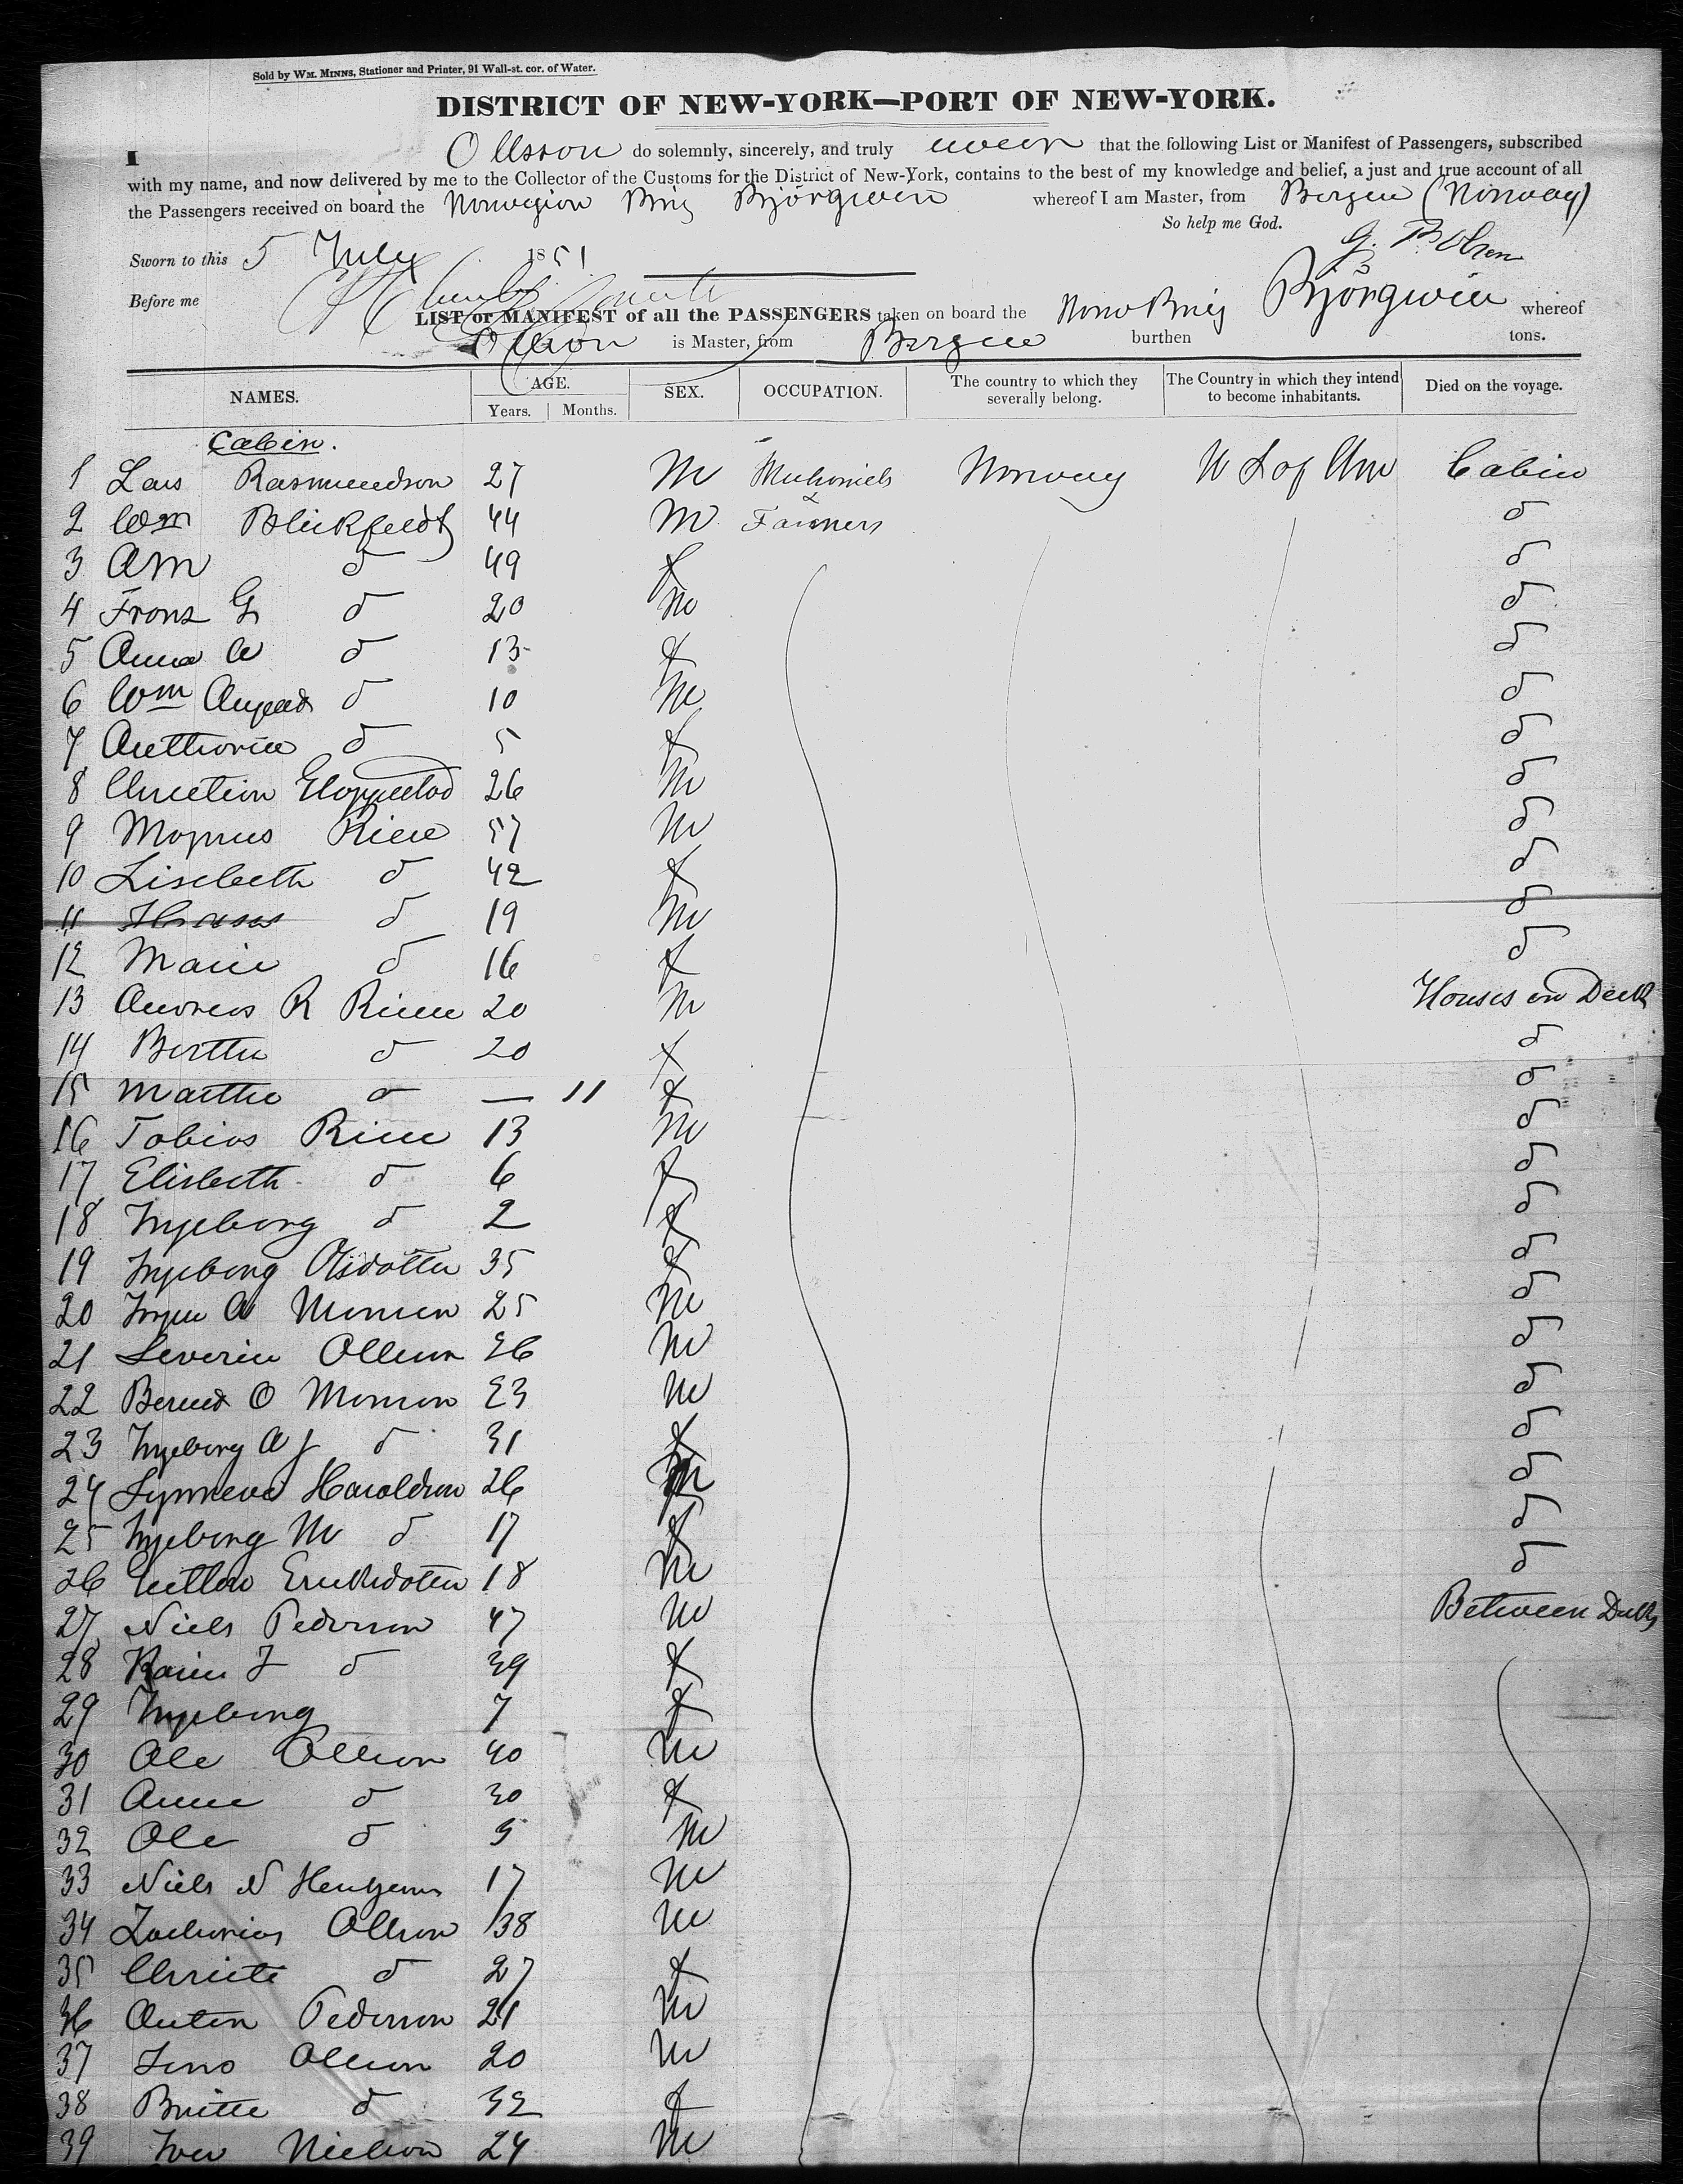 Sold by WM. MINNS, Stationer and Printer, 91 Wall-st. cor. of Water.
DISTRICT OF NEW-YORK—PORT OF NEW-YORK.
I Ollsson do solemnly, sincerely, and truly swear that the following List or Manifest of Passengers, subscribed
with my name, and now delivered by me to the Collector of the Customs for the District of New-York, contains to the best of my knowledge and belief, a just and true account of all
the Passengers received on board the Norwegian Brig Björgwein whereof I am Master, from Bergen (Norway)
So help me God.
Sworn to this 5 July 1851 G. B. Olsen
Before me
LIST or MANIFEST of all the PASSENGERS taken on board the Norw Brig Björgwein whereof
Ollson is Master, from Bergen burthen tons.
NAMES. AGE. Years. Months. SEX. OCCUPATION. The country to which they severally belong. The Country in which they intend to become inhabitants. Died on the voyage.
Cabin.
1 Lars Rasmundson 27 M Mechanicks Norway U S of Am Cabin
2 Wm Blickfeldt 44 M & Farmers do
3 AM do 49 f do
4 Frans G do 20 M do
5 Anna A do 13 f do
6 Wm August do 10 M do
7 do 5 f do
8 Christian 26 M do
9 Magnus 57 M do
10 Lisebeth do 42 f do
11 Hans do 19 M do
12 Marie do 16 f do
13 Andreas R 20 M Houses on Deck
14 Berthe do 20 f do
15 Marthe do — 11 f do
16 Tobias 13 M do
17 Elisbeth do 6 f do
18 Ingeborg do 2 f do
19 Ingeborg Olsdotter 35 f do
20 A Monsen 25 M do
21 Severin Ollson 36 M do
22 Bernd O Monson 23 M do
23 Ingeborg A J do 31 f do
24 Synneva Haroldson 26 M do
25 Ingeborg M do 17 f do
26 Ericksdotter 18 M do
27 Niels Pederson 47 M Between Decks
28 Karen J do 39 f
29 Ingeborg 7 f
30 Ole Ollson 40 M
31 Anne do 30 f
32 Ole do 5 M
33 Niels N 17 M
34 Zacharias Ollson 38 M
35 Christi do 27 f
36 Pederson 21 M
37 Jens Ollson 20 M
38 Britte do 32 f
39 Iver Nielson 24 M